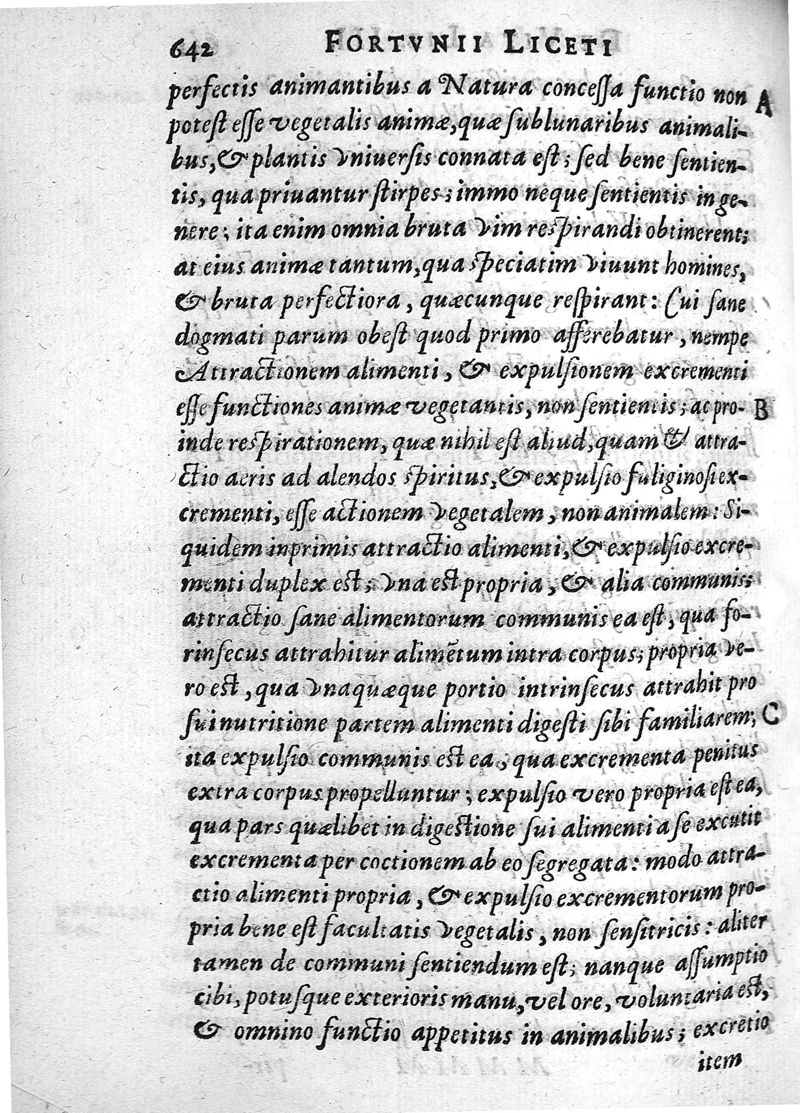 642 FORTVNII LICETI
perfectis animantibus a Natura concessa functio non A
potest esse vegetalis animæ, quæ sublunaribus animali-
bus, & plantis vniuersis connata est; sed bene sentien-
tis, qua priuantur stirpes; immo neque sentientis in ge-
nere; ita enim omnia bruta vim respirandi obtinerent;
at eius animæ tantum, qua speciatim viuunt homines,
& bruta perfectiora, quæcunque respirant: Cui sane
dogmati parum obest quod primo afferebatur, nempe
Attractionem alimenti, & expulsionem excrementi
esse functiones animæ vegetantis, non sentientis; ac pro- B
inde respirationem, quæ nihil est aliud, quam & attra-
ctio aeris ad alendos spiritus, & expulsio fuliginosi ex-
crementi, esse actionem vegetalem, non animalem: Si-
quidem inprimis attractio alimenti, & expulsio excre-
menti duplex est; vna est propria, & alia communis:
attractio sane alimentorum communis ea est, qua fo-
rinsecus attrahitur alimẽtum intra corpus; propria ve-
ro est, qua vnaquæque portio intrinsecus attrahit pro
sui nutritione partem alimenti digesti sibi familiarem; C
ita expulsio communis est ea, qua excrementa penitus
extra corpus propelluntur; expulsio vero propria est ea,
qua pars quælibet in digestione sui alimenti a se excutit
excrementa per coctionem ab eo segregata: modo attra-
ctio alimenti propria, & expulsio excrementorum pro-
pria bene est facultatis vegetalis, non sensitricis: aliter
tamen de communi sentiendum est; nanque assumptio
cibi, potusque exterioris manu, vel ore, voluntaria est,
& omnino functio appetitus in animalibus; excretio
item